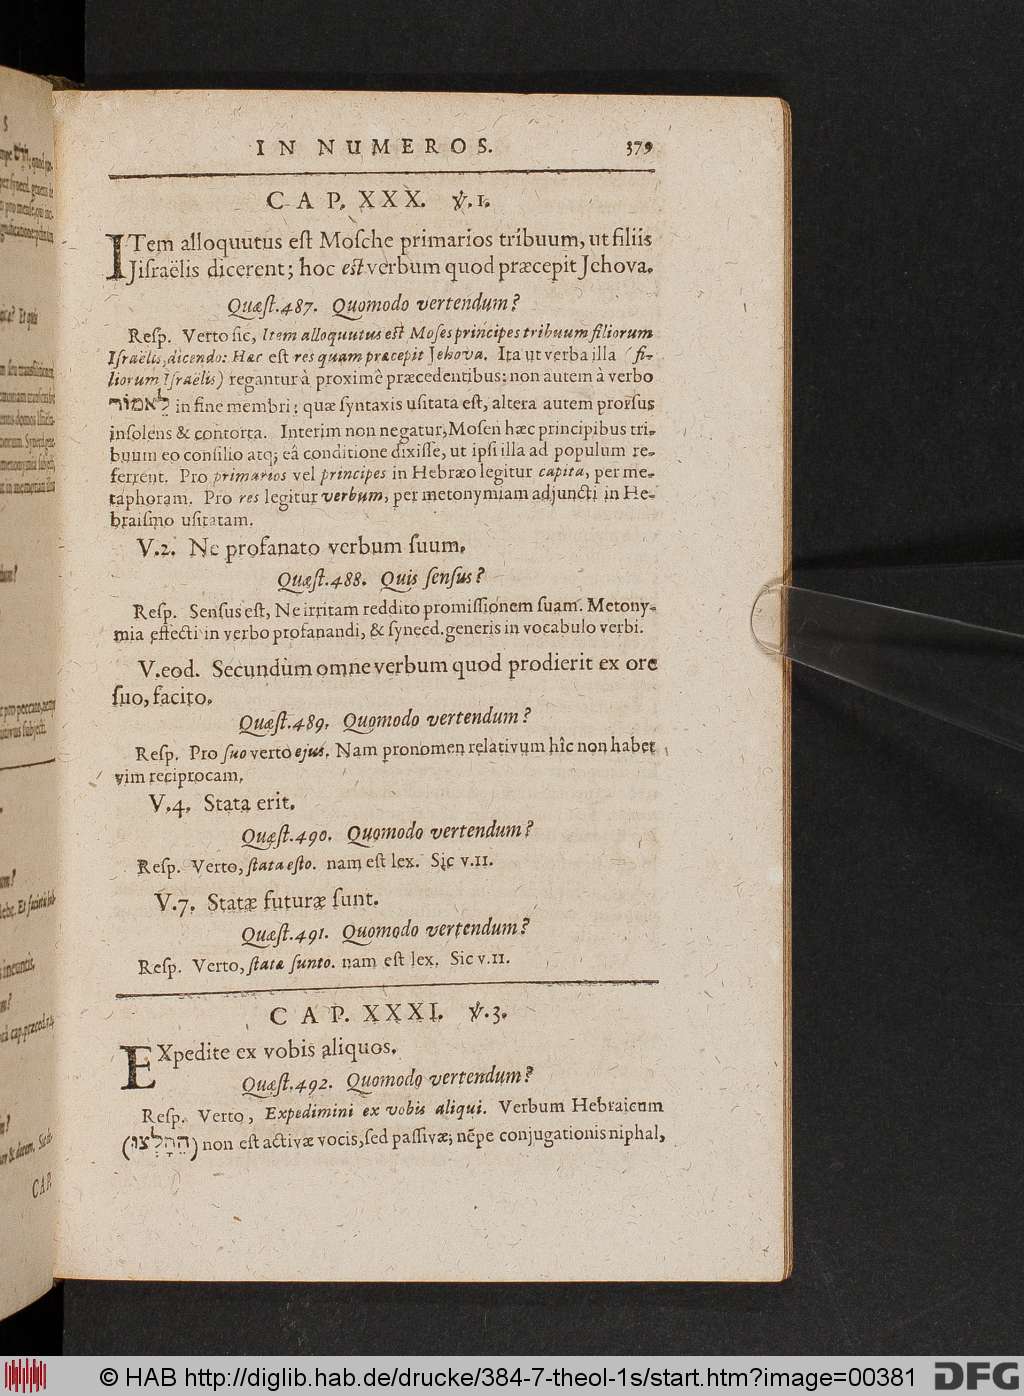 IN NUMEROS. 379
CAP. XXX. ℣.1.
ITem alloquutus eſt Moſche primarios tribuum, ut filiis
Jiſraëlis dicerent; hoc eſt verbum quod præcepit Jehova.
Quæſt.487. Quomodo vertendum?
Reſp. Verto ſic, Item alloquutus eſt Moſes principes tribuum filiorum
Iſraëlis, dicendo: Hæc eſt res quam præcepit Jehova. Ita ut verba illa (fi-
liorum Iſraëlis) regantur à proximê præcedentibus: non autem à verbo
לֵאמוֹר in fine membri: quæ ſyntaxis uſitata eſt, altera autem prorſus
inſolens & contorta. Interim non negatur, Moſen hæc principibus tri-
buum eo conſilio atq; eâ conditione dixiſſe, ut ipſi illa ad populum re-
ferrent. Pro primarios vel principes in Hebræo legitur capita, per me-
taphoram. Pro res legitur verbum, per metonymiam adjuncti in He-
braiſmo uſitatam.
V.2. Ne profanato verbum ſuum.
Quæſt.488. Quis ſenſus?
Reſp. Senſus eſt, Ne irritam reddito promiſſionem ſuam. Metony-
mia effecti in verbo profanandi, & ſynecd. generis in vocabulo verbi.
V.eod. Secundùm omne verbum quod prodierit ex ore
ſuo, facito.
Quæſt.489. Quomodo vertendum?
Reſp. Pro ſuo verto ejus. Nam pronomen relativum hîc non habet
vim reciprocam.
V.4. Stata erit.
Quæſt.490. Quomodo vertendum?
Reſp. Verto, ſtata eſto. nam eſt lex. Sic v.11.
V.7. Statæ futuræ ſunt.
Quæſt.491. Quomodo vertendum?
Reſp. Verto, ſtata ſunto. nam eſt lex. Sic v.11.
CAP. XXXI. ℣.3.
EXpedite ex vobis aliquos.
Quæſt.492. Quomodo vertendum?
Reſp. Verto, Expedimini ex vobis aliqui. Verbum Hebraicum
(הֵהָלְצוּ) non eſt activæ vocis, ſed paſſivæ; nẽpe conjugationis niphal,
CAP.
© HAB http://diglib.hab.de/drucke/384-7-theol-1s/start.htm?image=00381
DFG